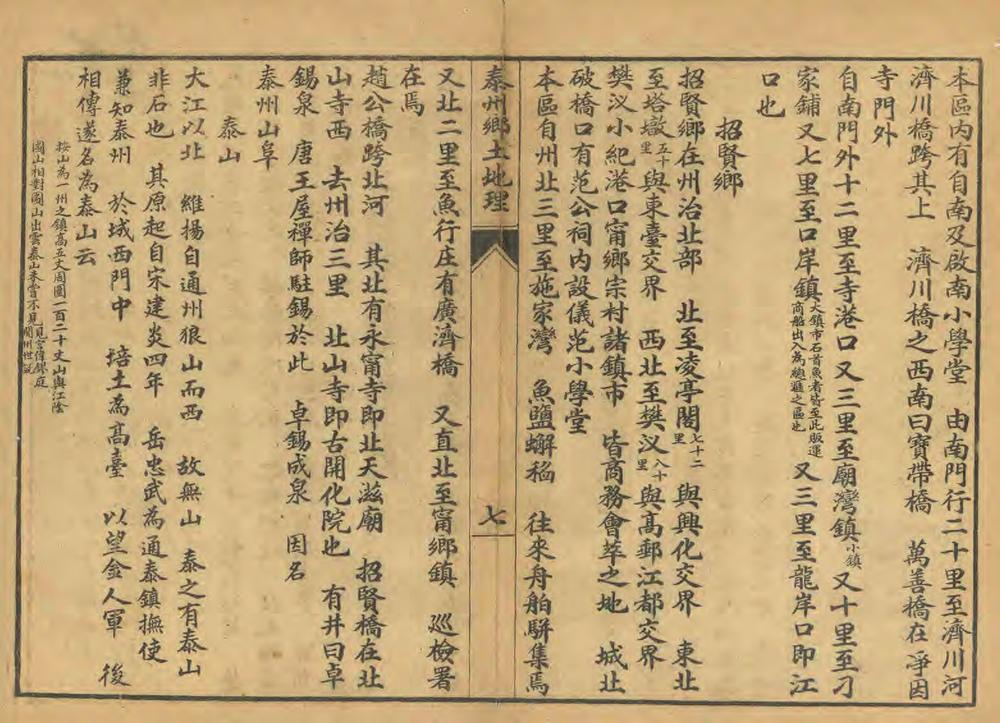 本區內有自南及啟南小學堂　由南門行二十里至濟川河
濟川橋跨其上　濟川橋之西南曰寶帶橋　萬善橋在淨因
寺門外
自南門外十二里至寺港口又三里至廟灣鎮小鎮又十里至刁
家鋪又七里至口岸鎮大鎮市石首魚者皆至此販運商船出入為總匯之區也又三里至龍岸口即江
口也
招賢鄉
招賢鄉在州治北部　北至凌亭閣七十二里與興化交界　東北
至塔墩五十里與東臺交界　西北至樊汊八十里與高郵江都交界
樊汊小紀港口甯鄉宗村諸鎮市　皆商務會萃之地　城北
破橋口有范公祠內設儀范小學堂
本區自州北三里至施家灣　魚鹽蠏稻　往來舟舶駢集焉
泰州鄉土地理
七
又北二里至魚行庄有廣濟橋　又直北至甯鄉鎮　巡檢署
在焉
趙公橋跨北河　其北有永甯寺即北天滋廟　招賢橋在北
山寺西　去州治三里　北山寺即古開化院也　有井曰卓
錫泉　唐王屋禪師駐錫於此　卓錫成泉　因名
泰州山阜
泰山
大江以北　維揚自通州狼山而西　故無山　泰之有泰山
非石也　其原起自宋建炎四年　岳忠武為通泰鎮撫使
兼知泰州　於城西門中　培土為高臺　以望金人軍　後
相傳遂名為泰山云
按山為一州之鎮高五丈周圍一百二十丈山與江陰
圌山相對圌山出雲泰山未嘗不見